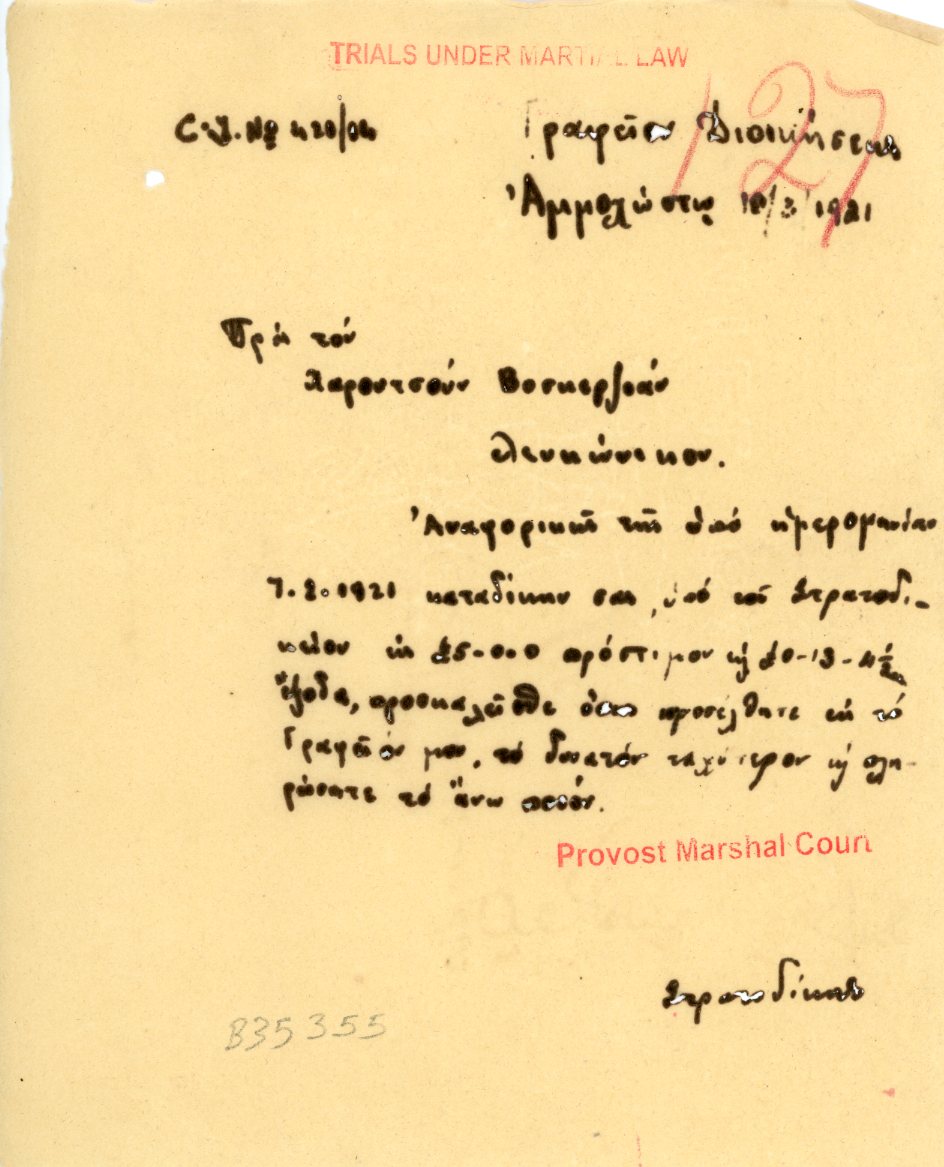 TRIALS UNDER MARTIAL LAW
127
C.J. Nº 420/04
Γραφεῖον Διοικήσεως
Ἀμμοχώστου 18/3/1921
Πρὸς τόν
Χαρουτσούν Βοσκερζιάν
Λευκόνοικον.
Ἀναφορικῶς τῆς ὑπό ἡμερομηνίαν
7.2.1921 καταδίκην σας, ὑπό τοῦ Στρατοδι-
κείου εἰς £5-0-0 πρόστιμον κ £0-13-4½
ἔξοδα, προσκαλεῖσθε ὅπως προσέλθητε εἰς τό
Γραφεῖόν μου, τό δυνατόν ταχύτερον κ πλη-
ρώσατε τό ἄνω ποσόν.
Provost Marshal Court
Στρατοδίκης
B35355